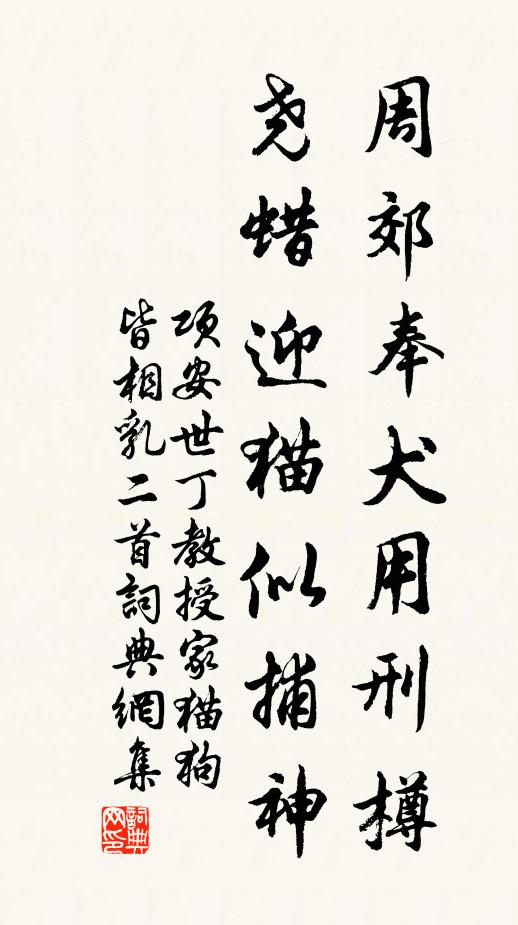 周郊奉犬用刑樽
尧蜡迎猫似捕神
项安世丁教授家猫狗
皆相乳二首詞典網集
詞典网印